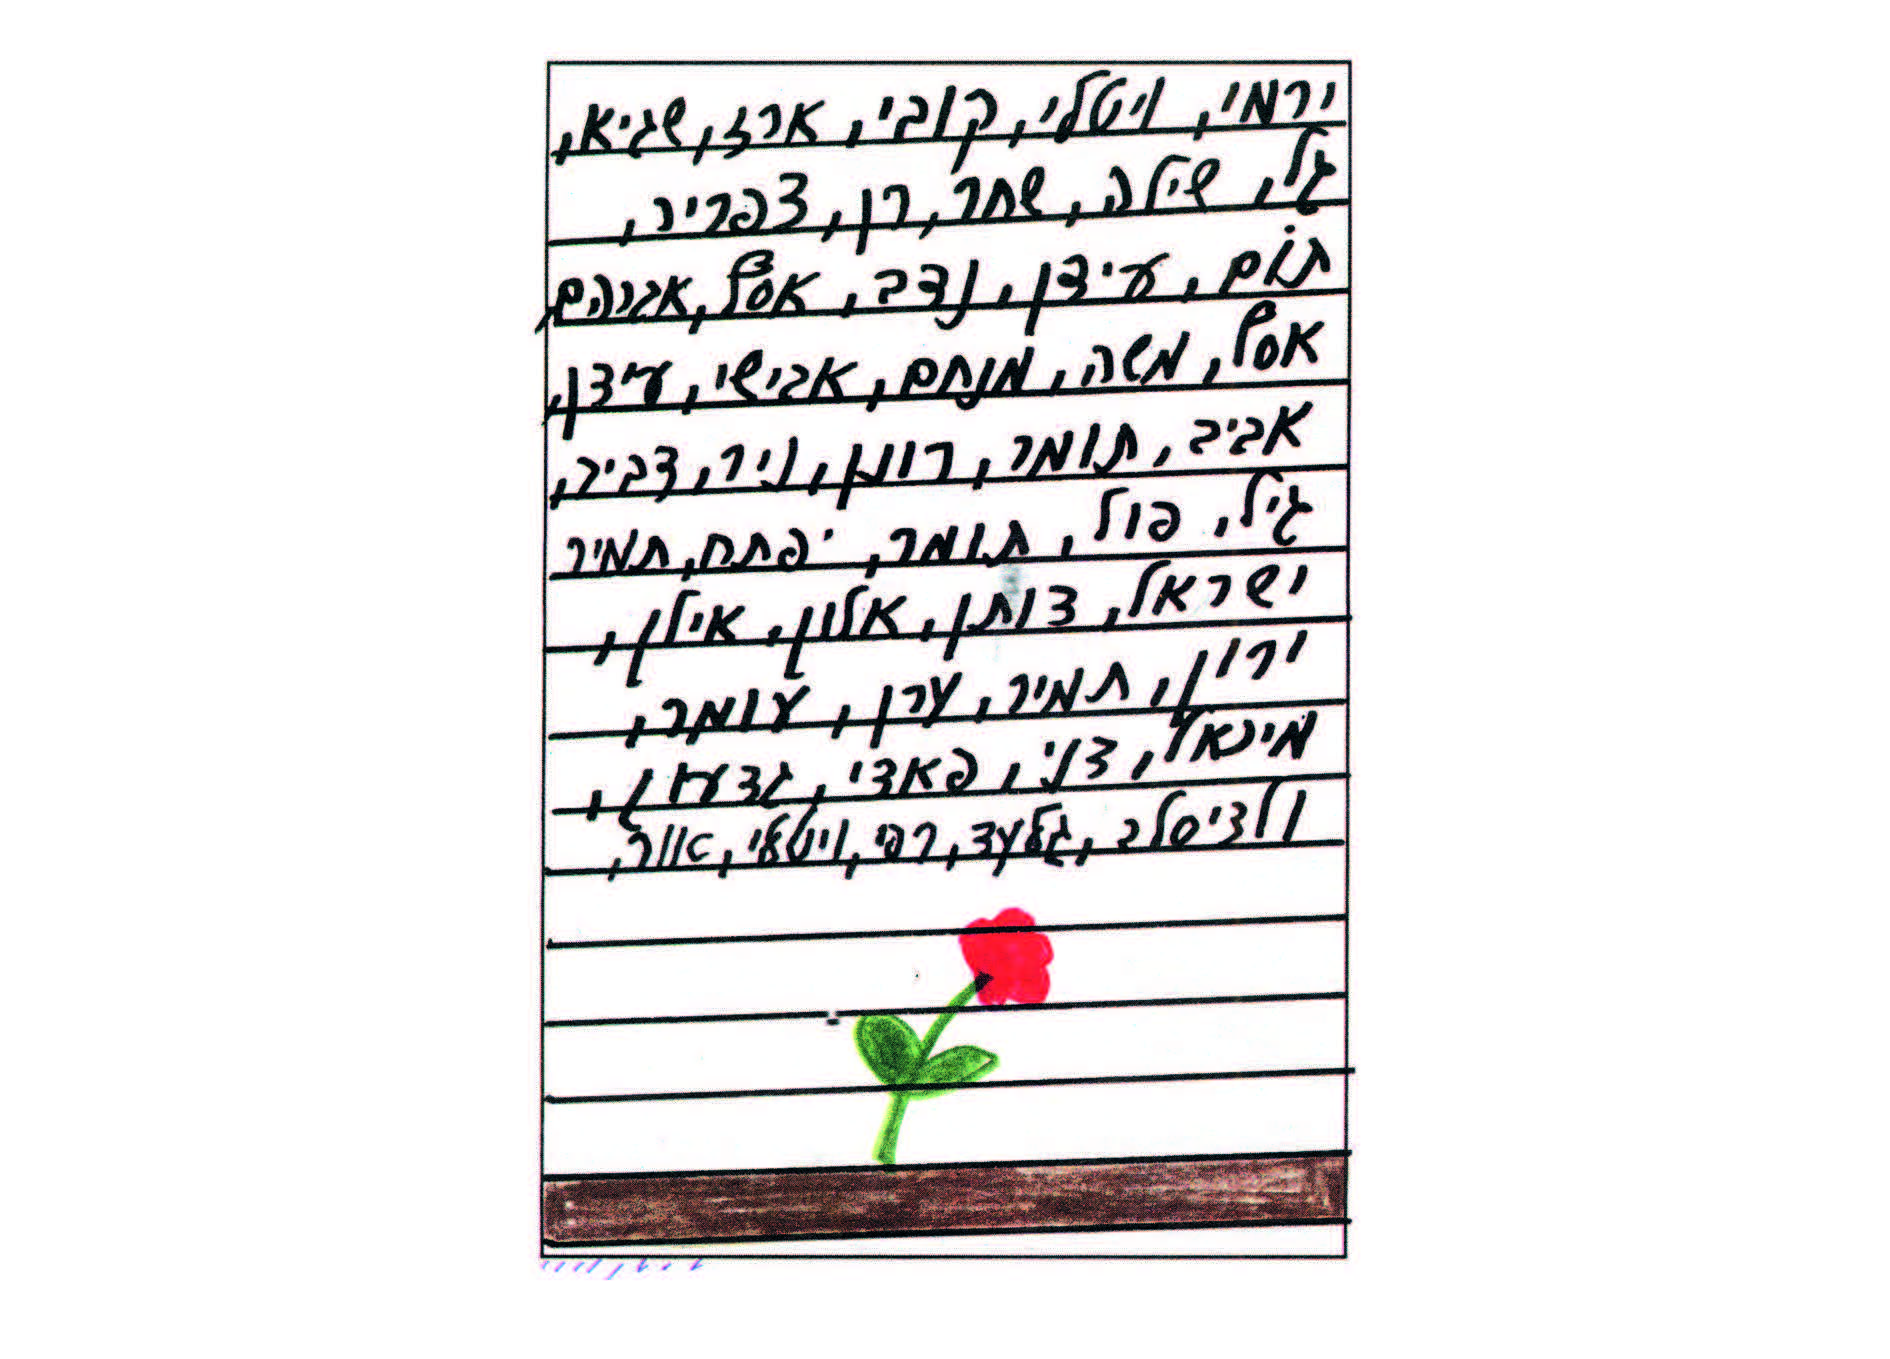 ירמי, ויטלי, קובי, ארז, שגיא,
גל, שילה, שחר, רן, צפריר,
תום, עידן, נדב, אסף, אברהם,
אסף, משה, מנחם, אבישי, עידן,
אביב, תומר, רונן, ניר, דביר,
גיל, פול, תומר, יפתח, תמיר
ישראל, דותן, אלון, אילן,
ירון, תמיר, ערן, עומר,
מיכאל, דני, פאדי, גדעון,
ולדיסלב, גלעד, רפי, ויטלי,